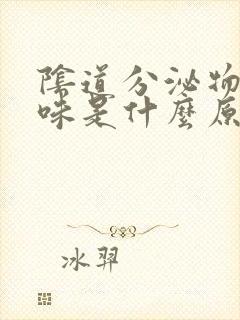 陰道分泌物
味是什麼原
冰羿